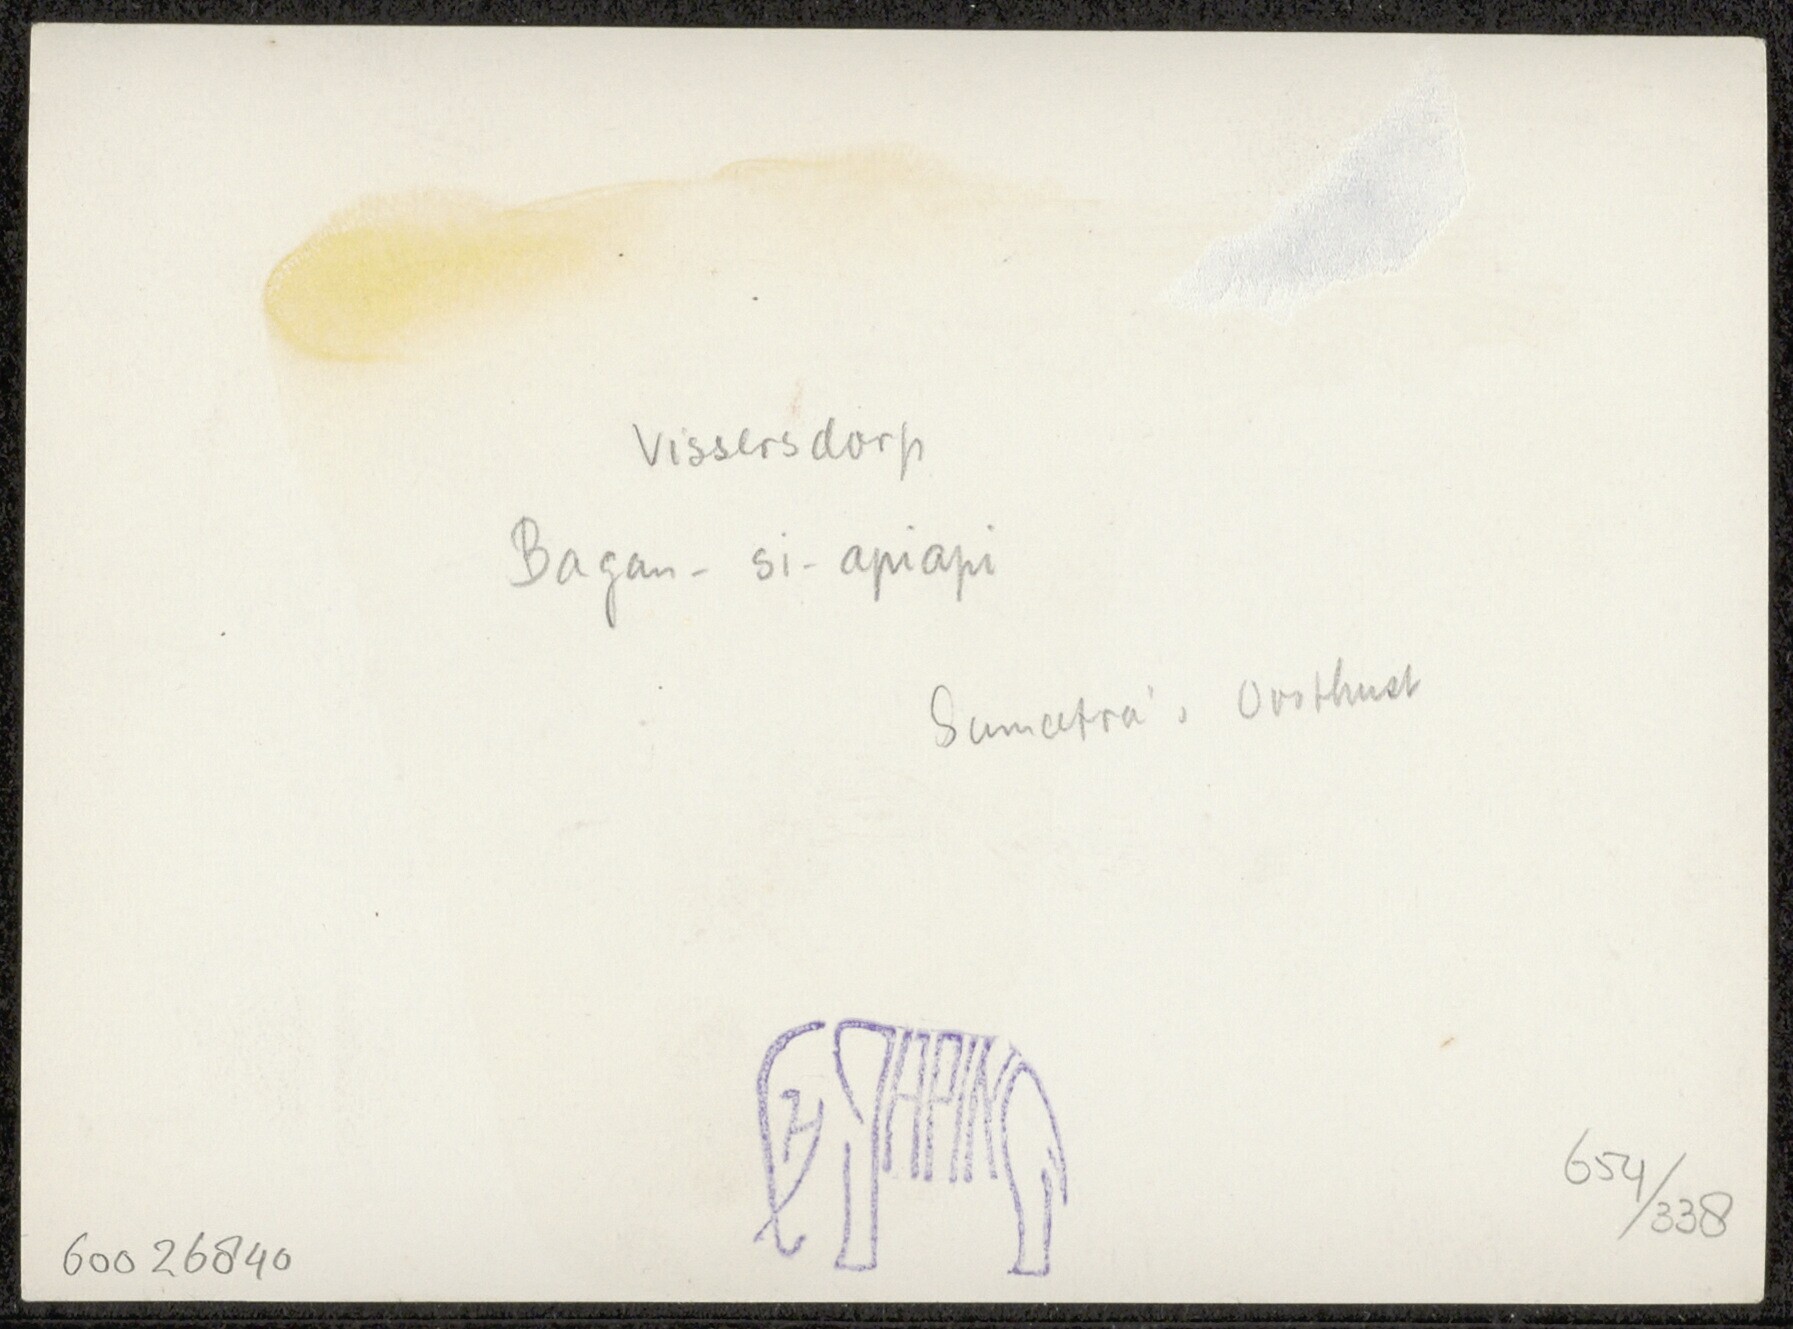 Vissersdorp
Bagan- si- apiapi
Sumatra's Oostkust
TAPIN
654/338
60026840